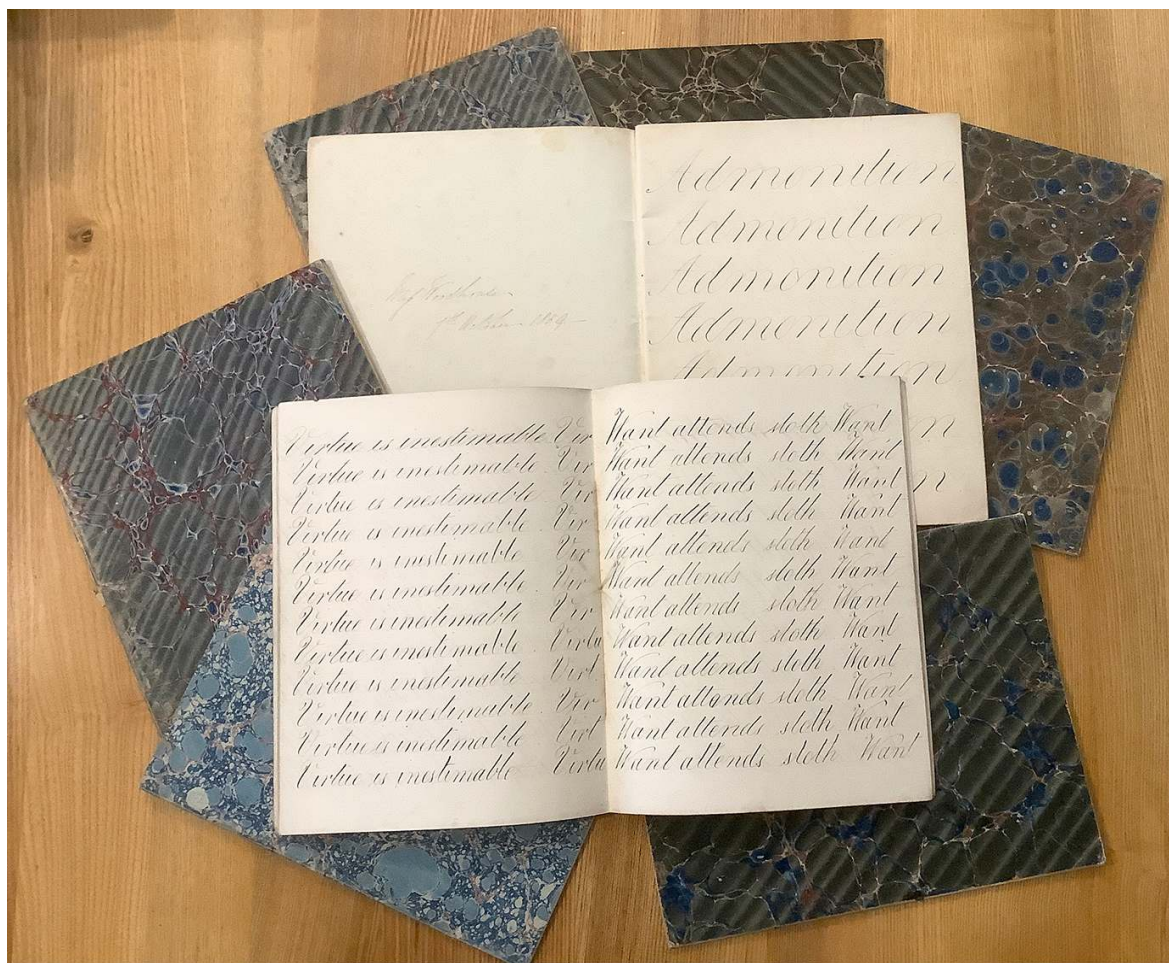 Miss Woodhouse
7th October
Admonition
Admonition
Admonition
Admonition
Admonition
on
n
Virtue is inestimable Vir
Virtue is inestimable Vir
Virtue is inestimable Vir
Virtue is inestimable Vir
Virtue is inestimable Vir
Virtue is inestimable Vir
Virtue is inestimable Vir
Virtue is inestimable Virtu
Virtue is inestimable Virt
Virtue is inestimable Vir
Virtue is inestimable Virt
Virtue is inestimable Virtu
Want attends sloth Want
Want attends sloth Want
Want attends sloth Want
Want attends sloth Want
Want attends sloth Want
Want attends sloth Want
Want attends sloth Want
Want attends sloth Want
Want attends sloth Want
Want attends sloth Want
Want attends sloth Want
Want attends sloth Want